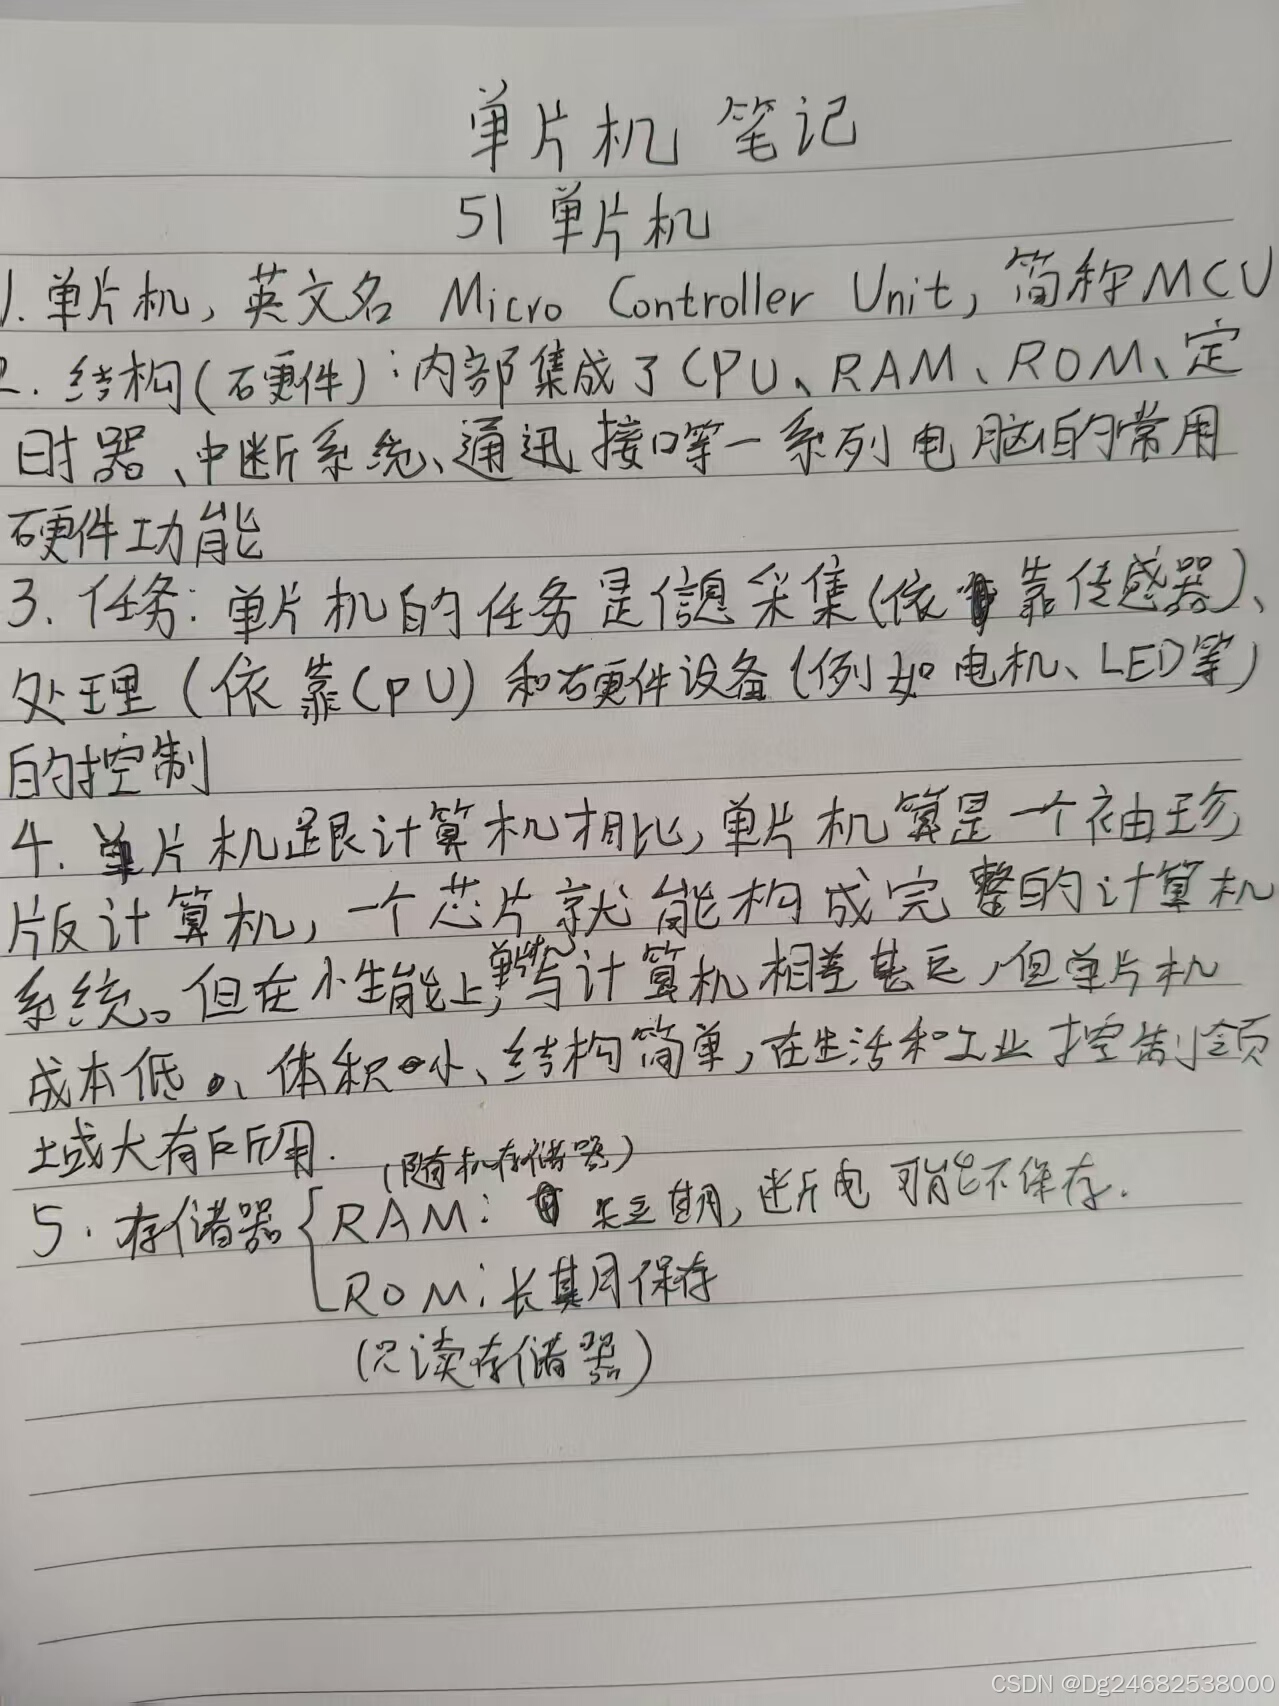 单片机 笔记
51 单片机
1. 单片机, 英文名 Micro Controller Unit, 简称MCU
2. 结构(硬件): 内部集成了CPU、RAM、ROM、定
时器、中断系统、通迅接口等一系列电脑的常用
硬件功能
3. 任务: 单片机的任务是信息采集(依靠传感器)、
处理(依靠CPU)和硬件设备(例如电机、LED等)
的控制
4. 单片机跟计算机相比, 单片机算是一个袖珍
版计算机, 一个芯片就能构成完整的计算机
系统。但在性能上, 单片机与计算机相差甚远, 但单片机
成本低、体积小、结构简单, 在生活和工业控制领
域大有所用.
(随机存储器)
5. 存储器 RAM: 短期, 断电可能不保存.
ROM: 长期保存
(只读存储器)
CSDN @Dg24682538000